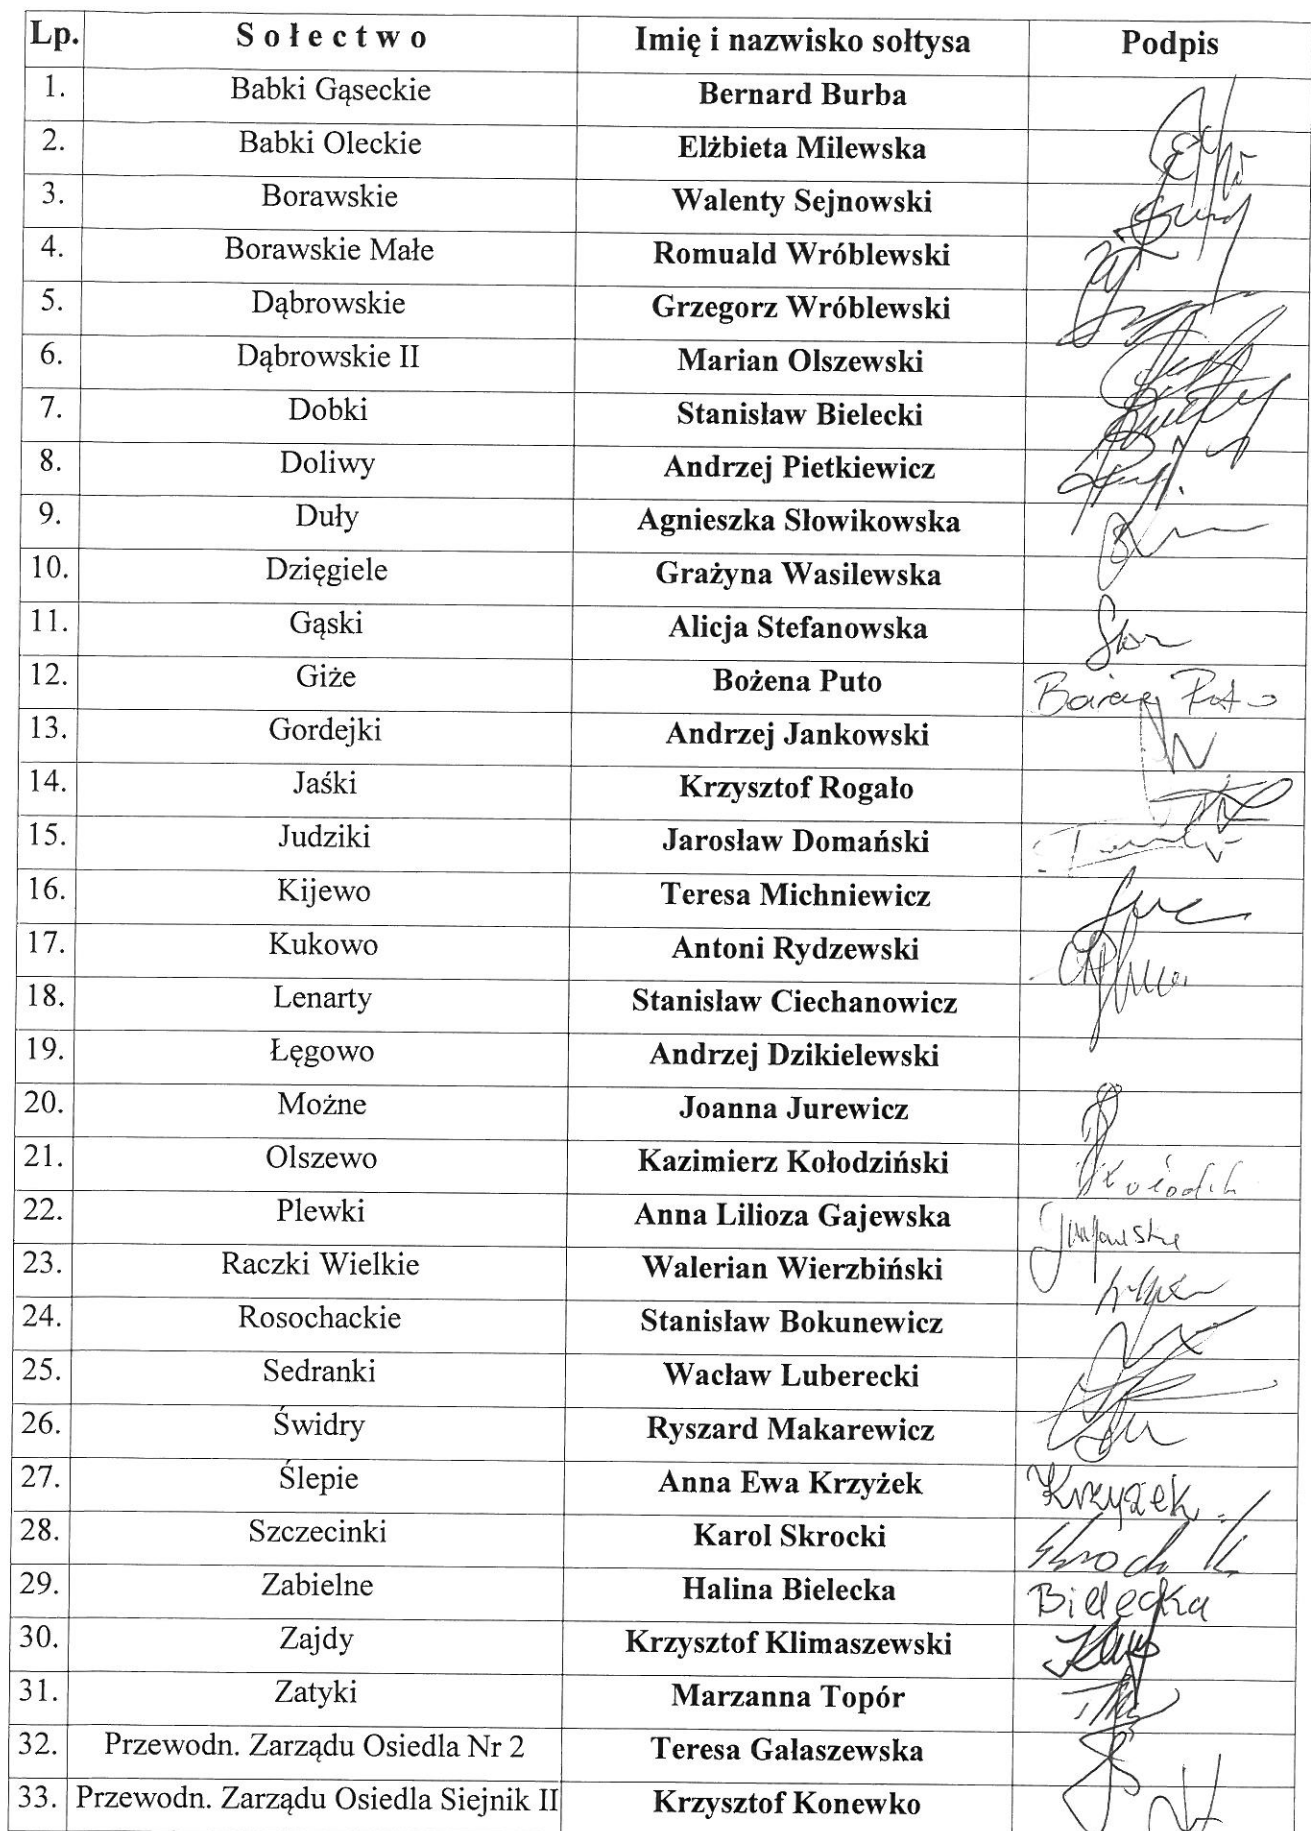 Lp. Sołectwo Imię i nazwisko sołtysa Podpis
1. Babki Gąseckie Bernard Burba
2. Babki Oleckie Elżbieta Milewska
3. Borawskie Walenty Sejnowski
4. Borawskie Małe Romuald Wróblewski
5. Dąbrowskie Grzegorz Wróblewski
6. Dąbrowskie II Marian Olszewski
7. Dobki Stanisław Bielecki
8. Doliwy Andrzej Pietkiewicz
9. Duły Agnieszka Słowikowska
10. Dzięgiele Grażyna Wasilewska
11. Gąski Alicja Stefanowska
12. Giże Bożena Puto
13. Gordejki Andrzej Jankowski
14. Jaśki Krzysztof Rogało
15. Judziki Jarosław Domański
16. Kijewo Teresa Michniewicz
17. Kukowo Antoni Rydzewski
18. Lenarty Stanisław Ciechanowicz
19. Łęgowo Andrzej Dzikielewski
20. Możne Joanna Jurewicz
21. Olszewo Kazimierz Kołodziński
22. Plewki Anna Lilioza Gajewska
23. Raczki Wielkie Walerian Wierzbiński
24. Rosochackie Stanisław Bokunewicz
25. Sedranki Wacław Luberecki
26. Świdry Ryszard Makarewicz
27. Ślepie Anna Ewa Krzyżek Krzyżek
28. Szczecinki Karol Skrocki
29. Zabielne Halina Bielecka Bielecka
30. Zajdy Krzysztof Klimaszewski
31. Zatyki Marzanna Topór
32. Przewodn. Zarządu Osiedla Nr 2 Teresa Gałaszewska
33. Przewodn. Zarządu Osiedla Siejnik II Krzysztof Konewko